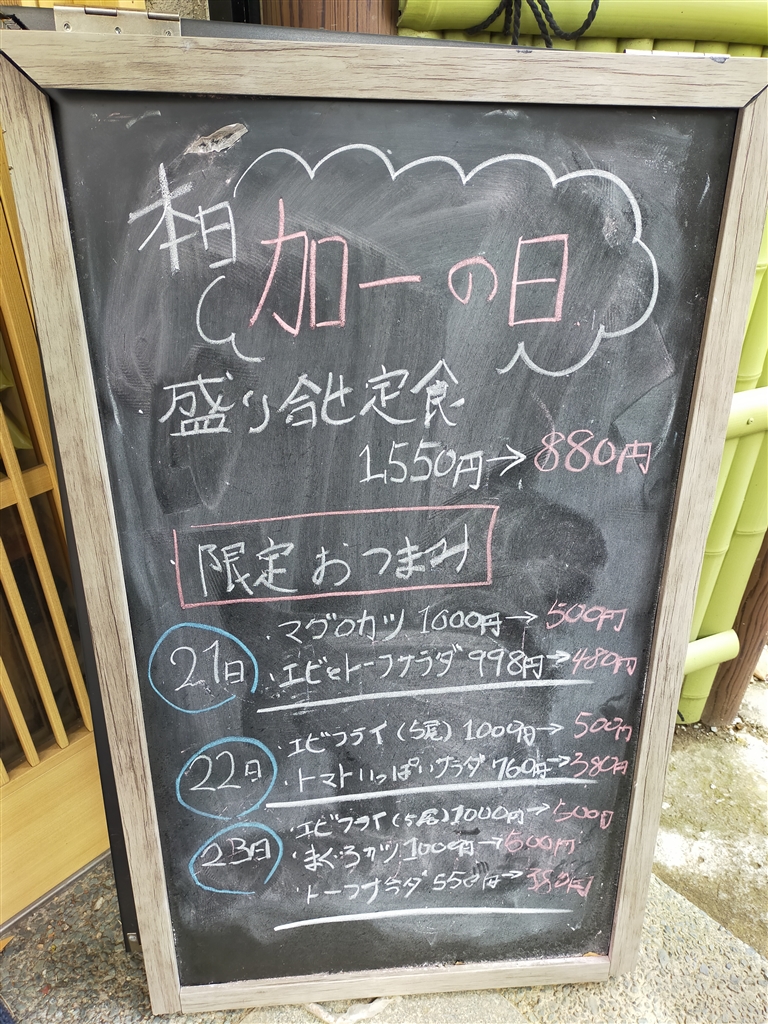 本日
加一の日
盛り合せ定食
1,550円→880円
限定おつまみ
21日
・マグロカツ 1000円→500円
・エビとトーフサラダ 998円→480円
22日
・エビフライ(5尾)1000円→500円
・トマトいっぱいサラダ 760円→380円
23日
・エビフライ(5尾)1000円→500円
・まぐろカツ 1000円→500円
トーフサラダ 550円→